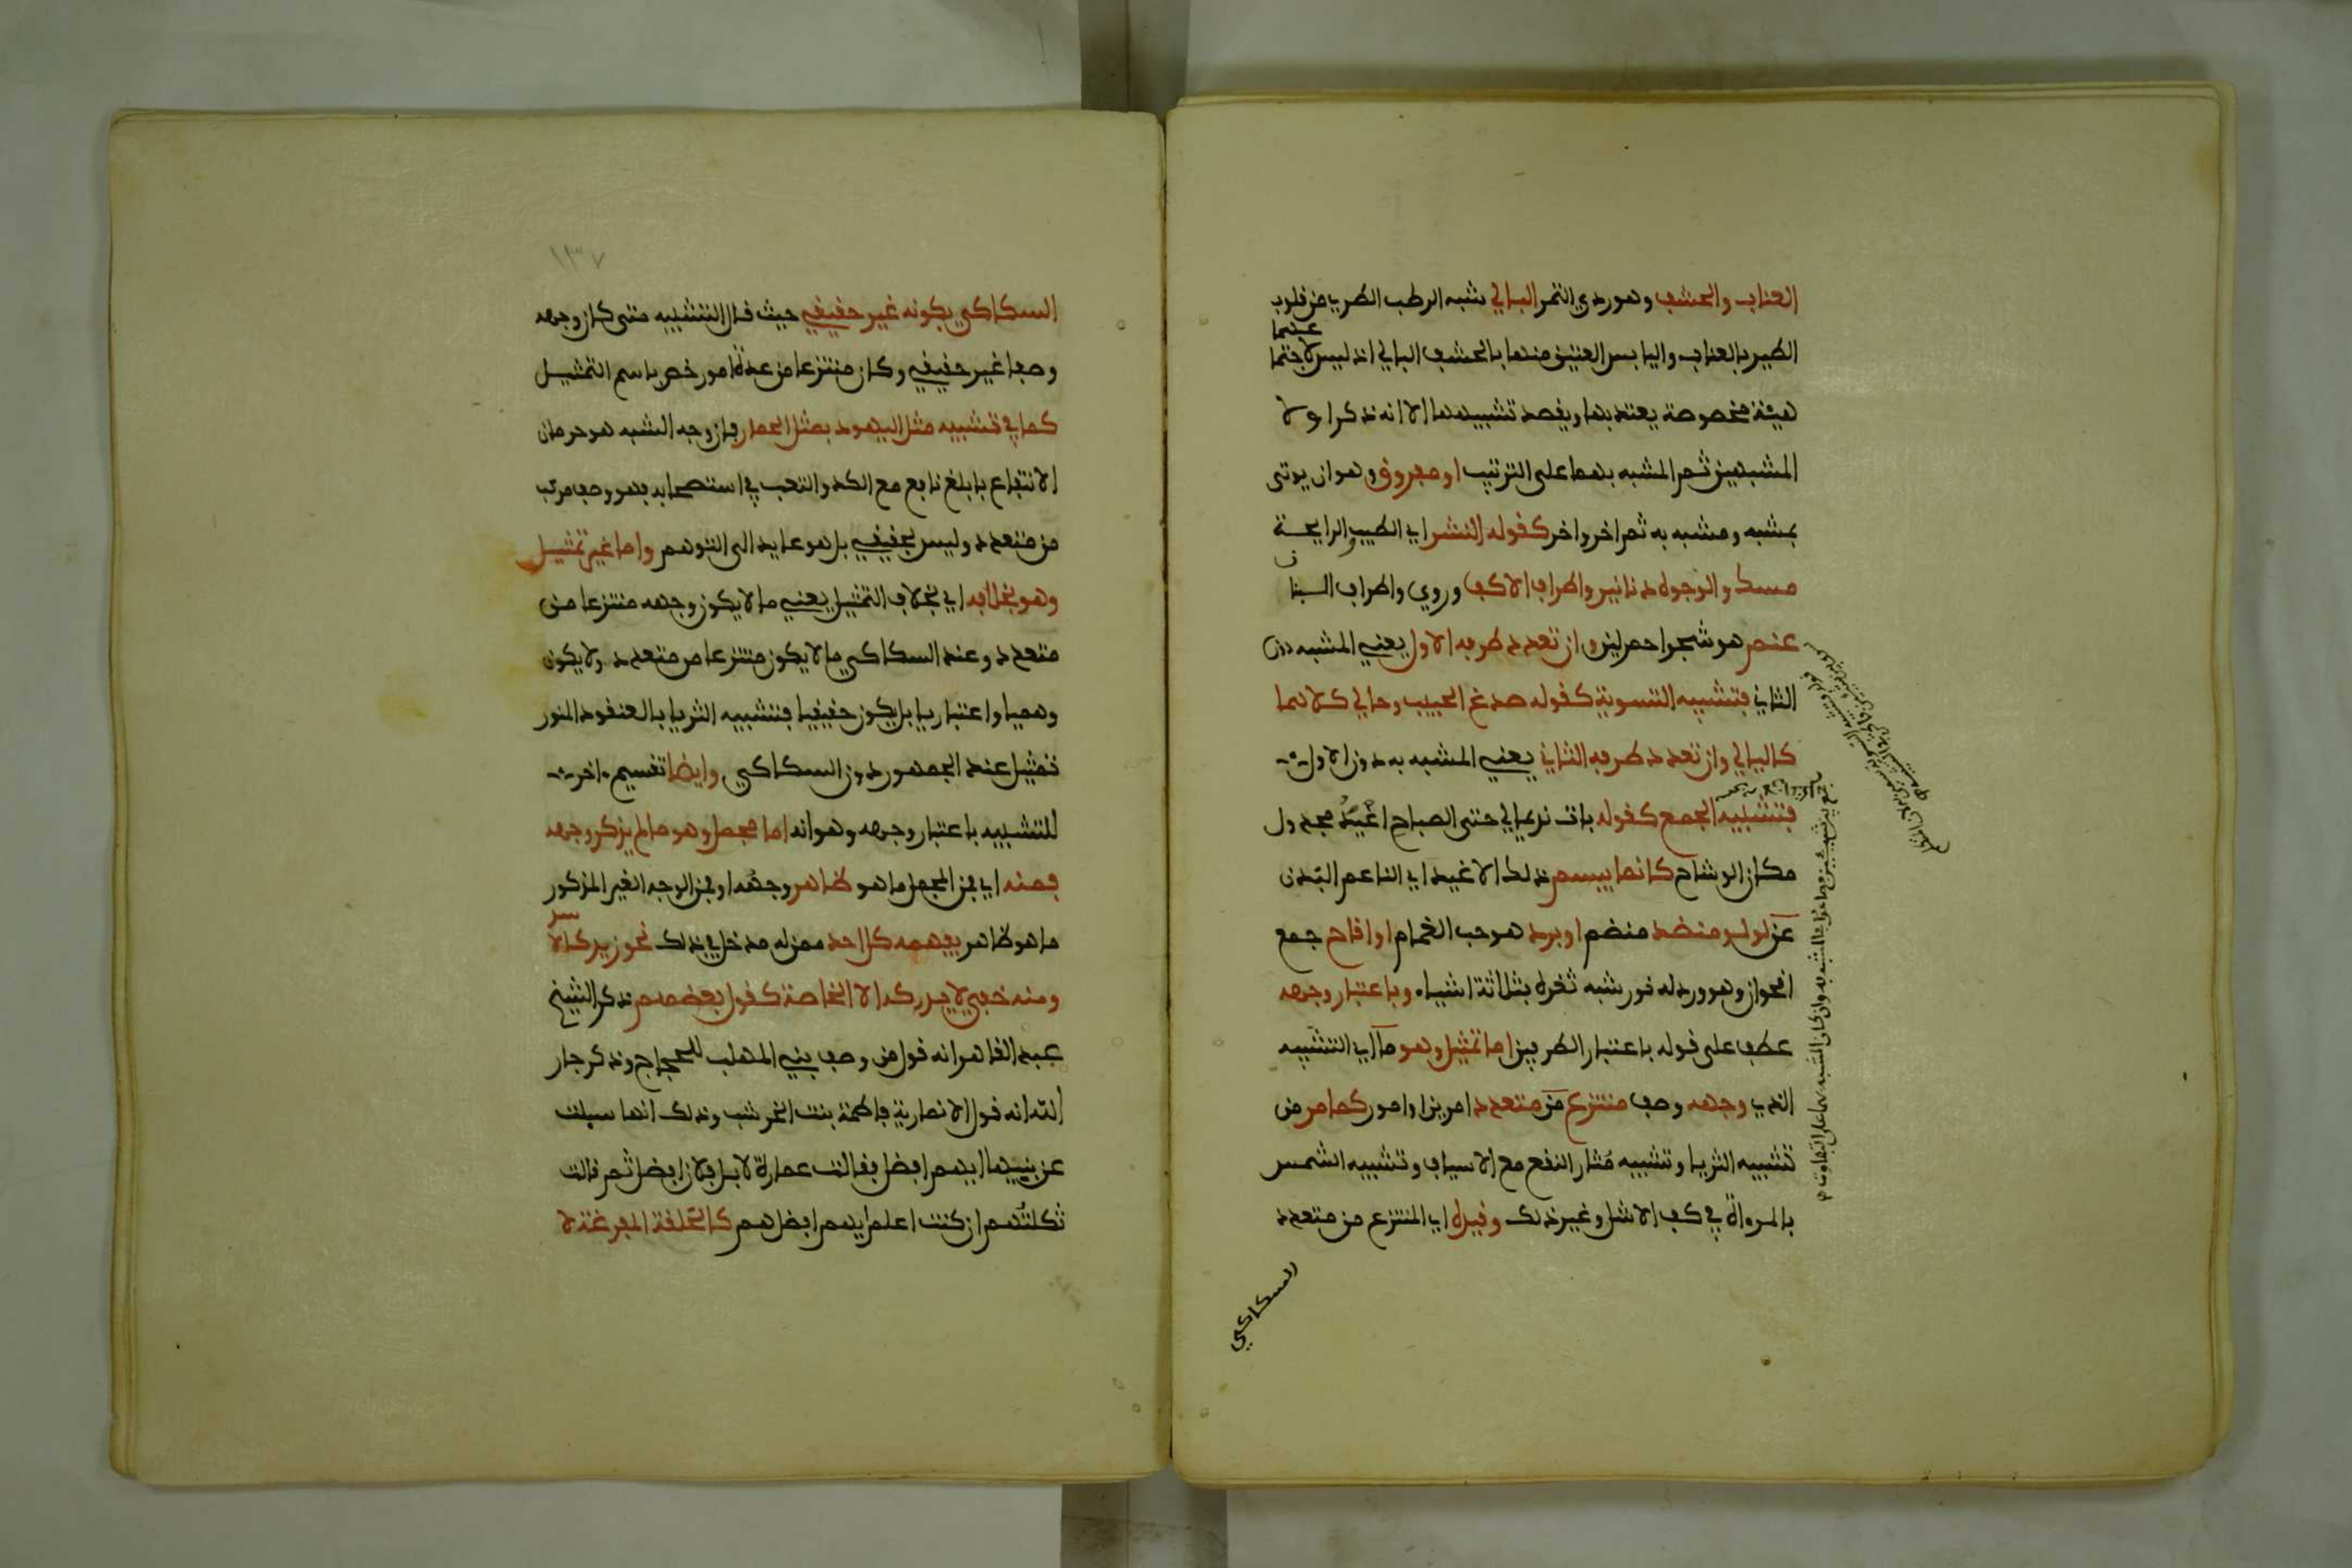 العناب والحشف وهو ردي التمر البالي شبه الرطب الطري من قلوب
الطير بالعناب واليابس العتيق منها بالحشف البالي اذ ليس لاجتما
عهما
هيئة مخصوصة يعتد بها ويقصد تشبيهها الا انه ذكر اولا
المشبهين ثم المشبه بهما على الترتيب او مفروق وهو ان يوتى
بمشبه ومشبه به ثم اخر واخر كقوله النشر اي الطيب والرايحة
مسك والوجوه دنانير واطراف الاكف وروي واطراف البنا
ن
عنم هو شجر احمر لين وان تعدد طرفه الاول يعني المشبه دون
الثاني فتشبيه التسوية كقوله صدغ الحبيب وحالي كلاهما
كالليالي وان تعدد طرفه الثاني يعني المشبه به دون الاول
فتشبيه الجمع كقوله بات نديما لي حتى الصباح اغيد مجدول
مكان الوشاح كانما يبسم ذلك الاغيد اي الناعم البدن
عن لولو منضد منضم او برد هو حب الغمام او اقاح جمع
اقحوان وهو ورد له نور شبه ثغره بثلاثة اشياء وباعتبار وجهه
عطف على قوله باعتبار الطرفين اما تمثيل وهو ما اي التشبيه
الذي وجهه وصف منتزع من متعدد امرين او امور كما مر من
تشبيه الثريا وتشبيه مثار النقع مع الاسياف وتشبيه الشمس
بالمرءاة في كف الاشل وغير ذلك وقيده اي المنتزع من متعدد
السكاكي
١٣٧
السكاكي بكونه غير حقيقي حيث قال التشبيه متى كان وجهه
وصفا غير حقيقي وكان منتزعا من عدة امور خص باسم التمثيل
كما في تشبيه مثل اليهود بمثل الحمار فان وجه الشبه هو حرمان
الانتفاع بابلغ نافع مع الكد والتعب في استصحابه فهو وصف مركب
من متعدد وليس بحقيقي بل هو عايد الى التوهم واما غير تمثيل
وهو بخلافه اي بخلاف التمثيل يعني ما لا يكون وجهه منتزعا من
متعدد وعند السكاكي ما لا يكون منتزعا من متعدد ولا يكون
وهميا واعتباريا بل يكون حقيقيا فتشبيه الثريا بالعنقود المنور
تمثيل عند الجمهور دون السكاكي وايضا تقسيم اخر
للتشبيه باعتبار وجهه وهو انه اما مجمل وهو ما لم يذكر وجهه
فمنه اي فمن المجمل ما هو ظاهر وجهه او فمن الوجه الغير المذكور
ما هو ظاهر يفهمه كل احد ممن له مدخل في ذلك نحو زيد كالا
سد
ومنه خفي لا يدركه الا الخاصة كقول بعضهم ذكر الشيخ
عبد القاهر انه قول من وصف بني المهلب للحجاج وذكر جار
الله انه قول الانمارية فاطمة بنت الخرشب وذلك انها سيلت
عن بنيها ايهم افضل فقالت عمارة لا بل فلان لا بل فلان ثم قالت
ثكلتهم ان كنت اعلم ايهم افضل هم كالحلقة المفرغة لا